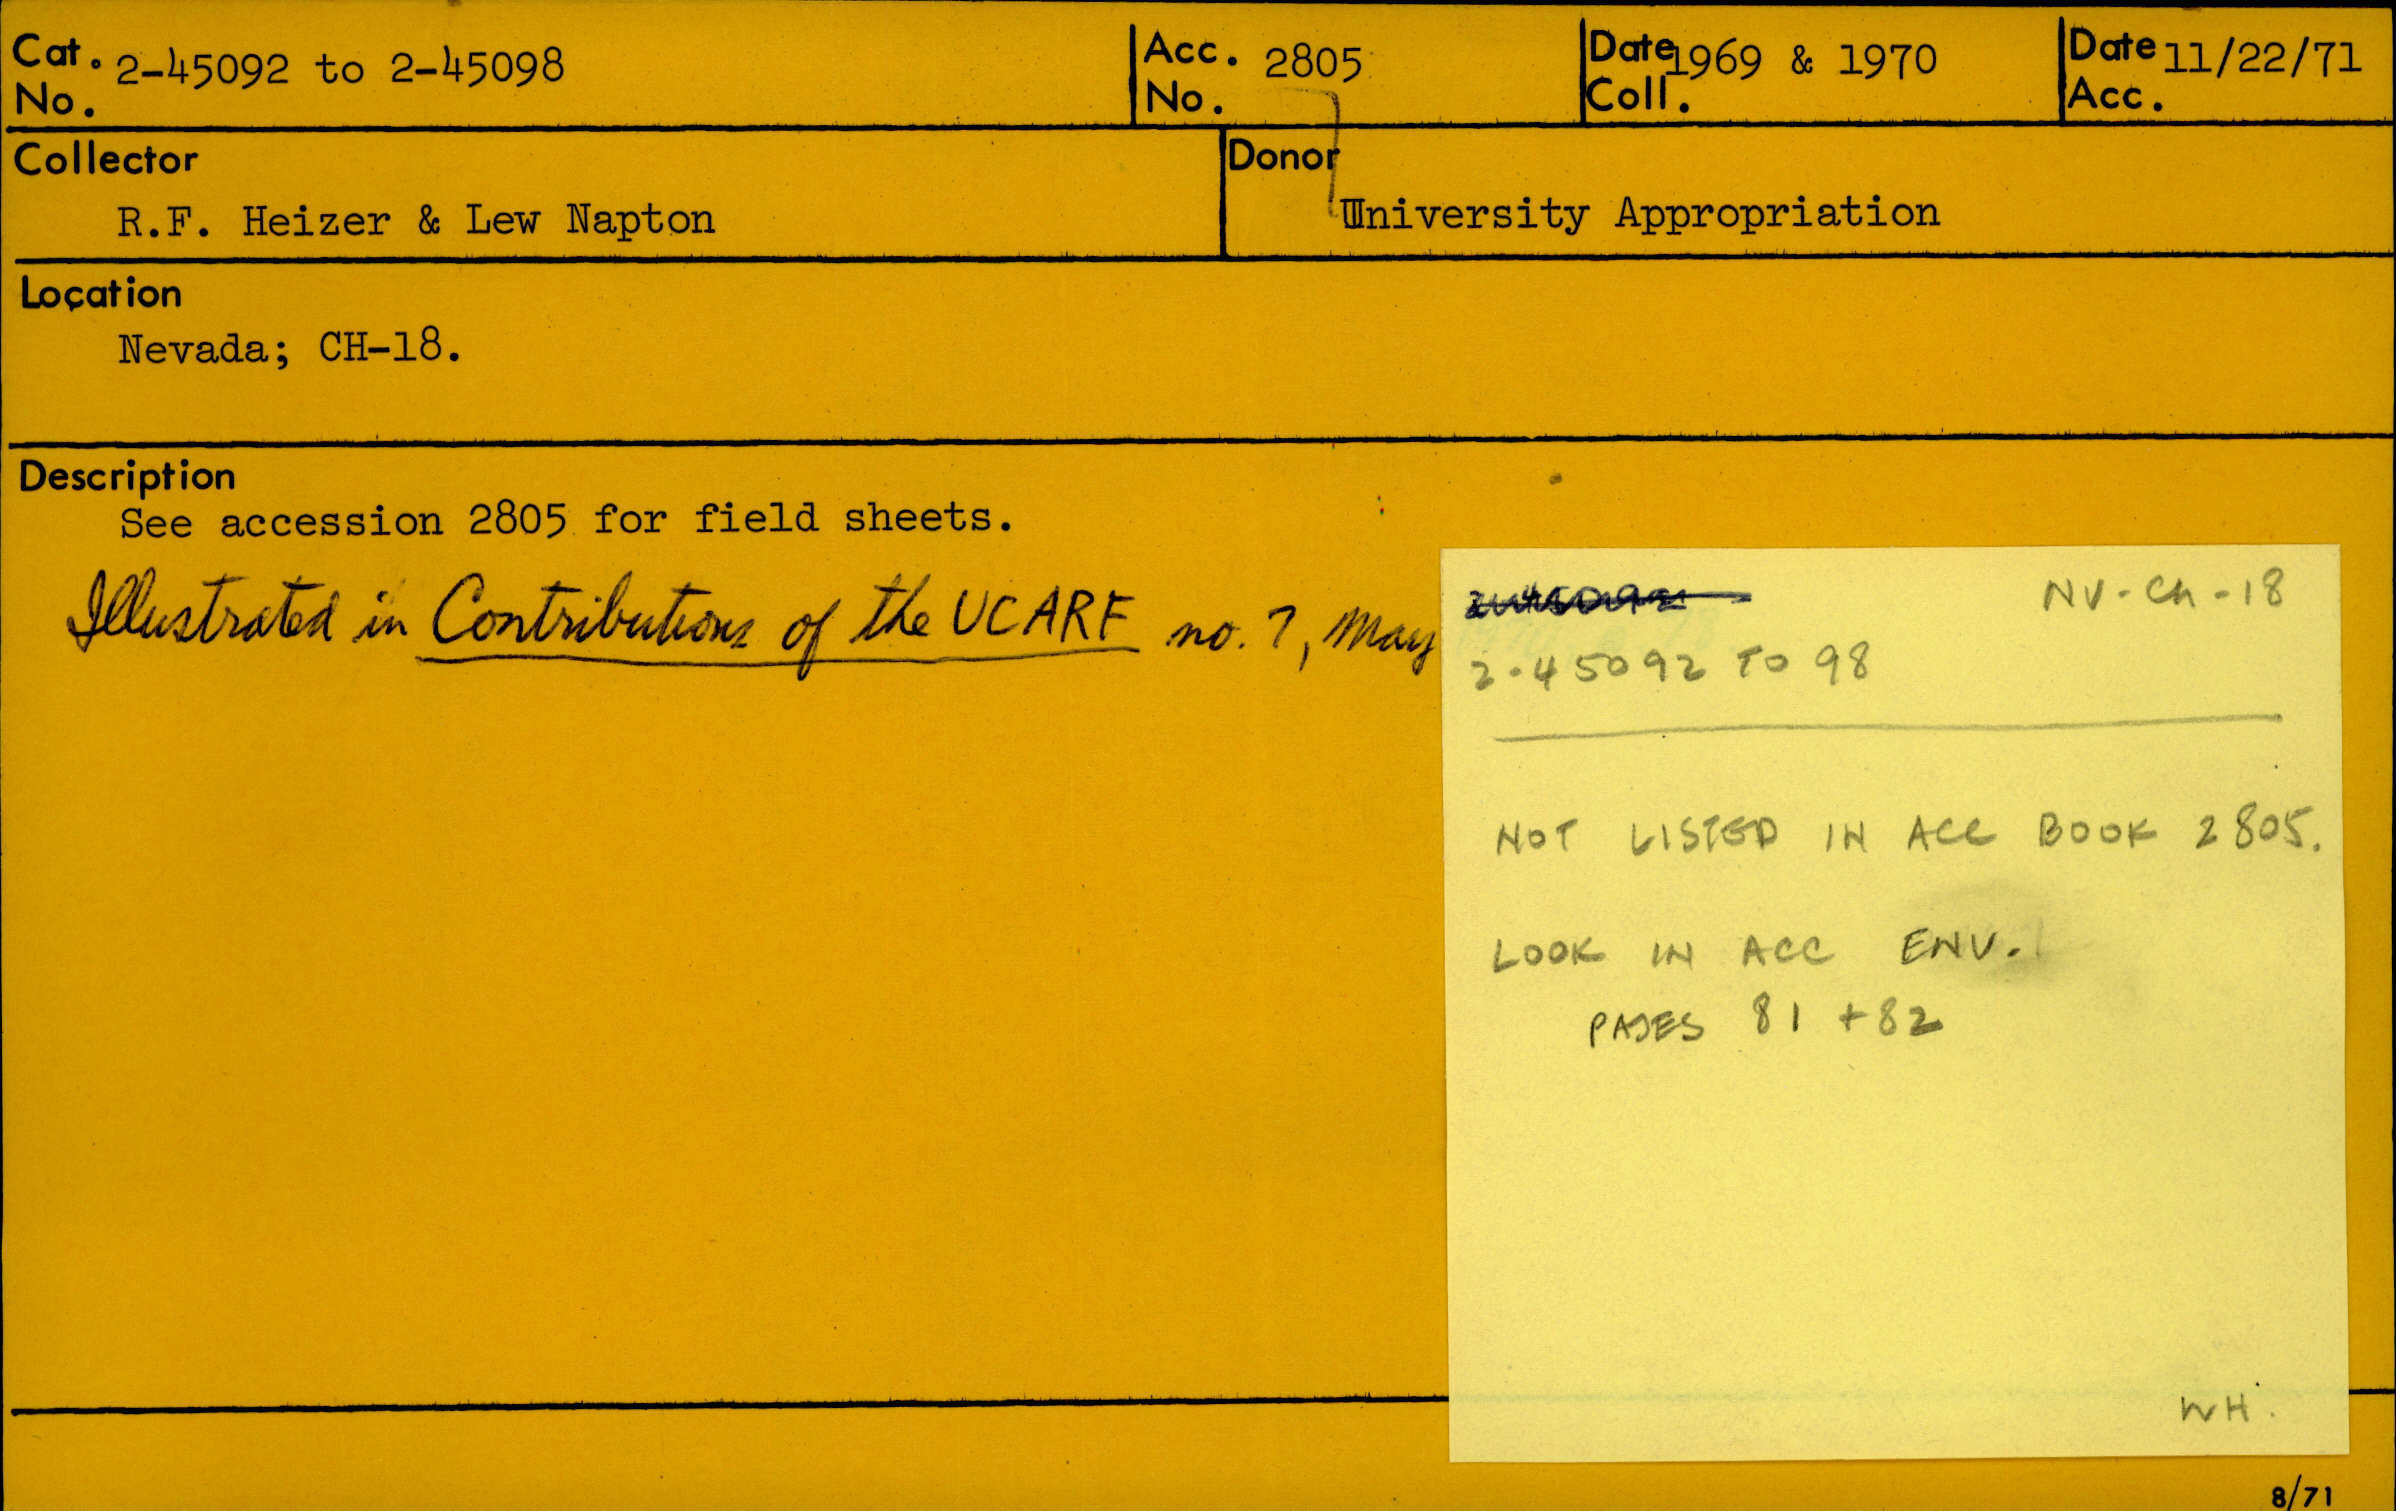 Cat. No. 2-45092 to 2-45098
Acc. No. 2805
Date Coll. 1969 & 1970
Date Acc. 11/22/71
Collector
R.F. Heizer & Lew Napton
Donor
University Appropriation
Location
Nevada; CH-18.
Description
See accession 2805 for field sheets.
Illustrated in Contributions of the UCARF no. 7, May
NV-Ch-18
2-45092 TO 98
NOT LISTED IN ACC BOOK 2805.
LOOK IN ACC ENV.
PAGES 81 + 82
WH.
8/71